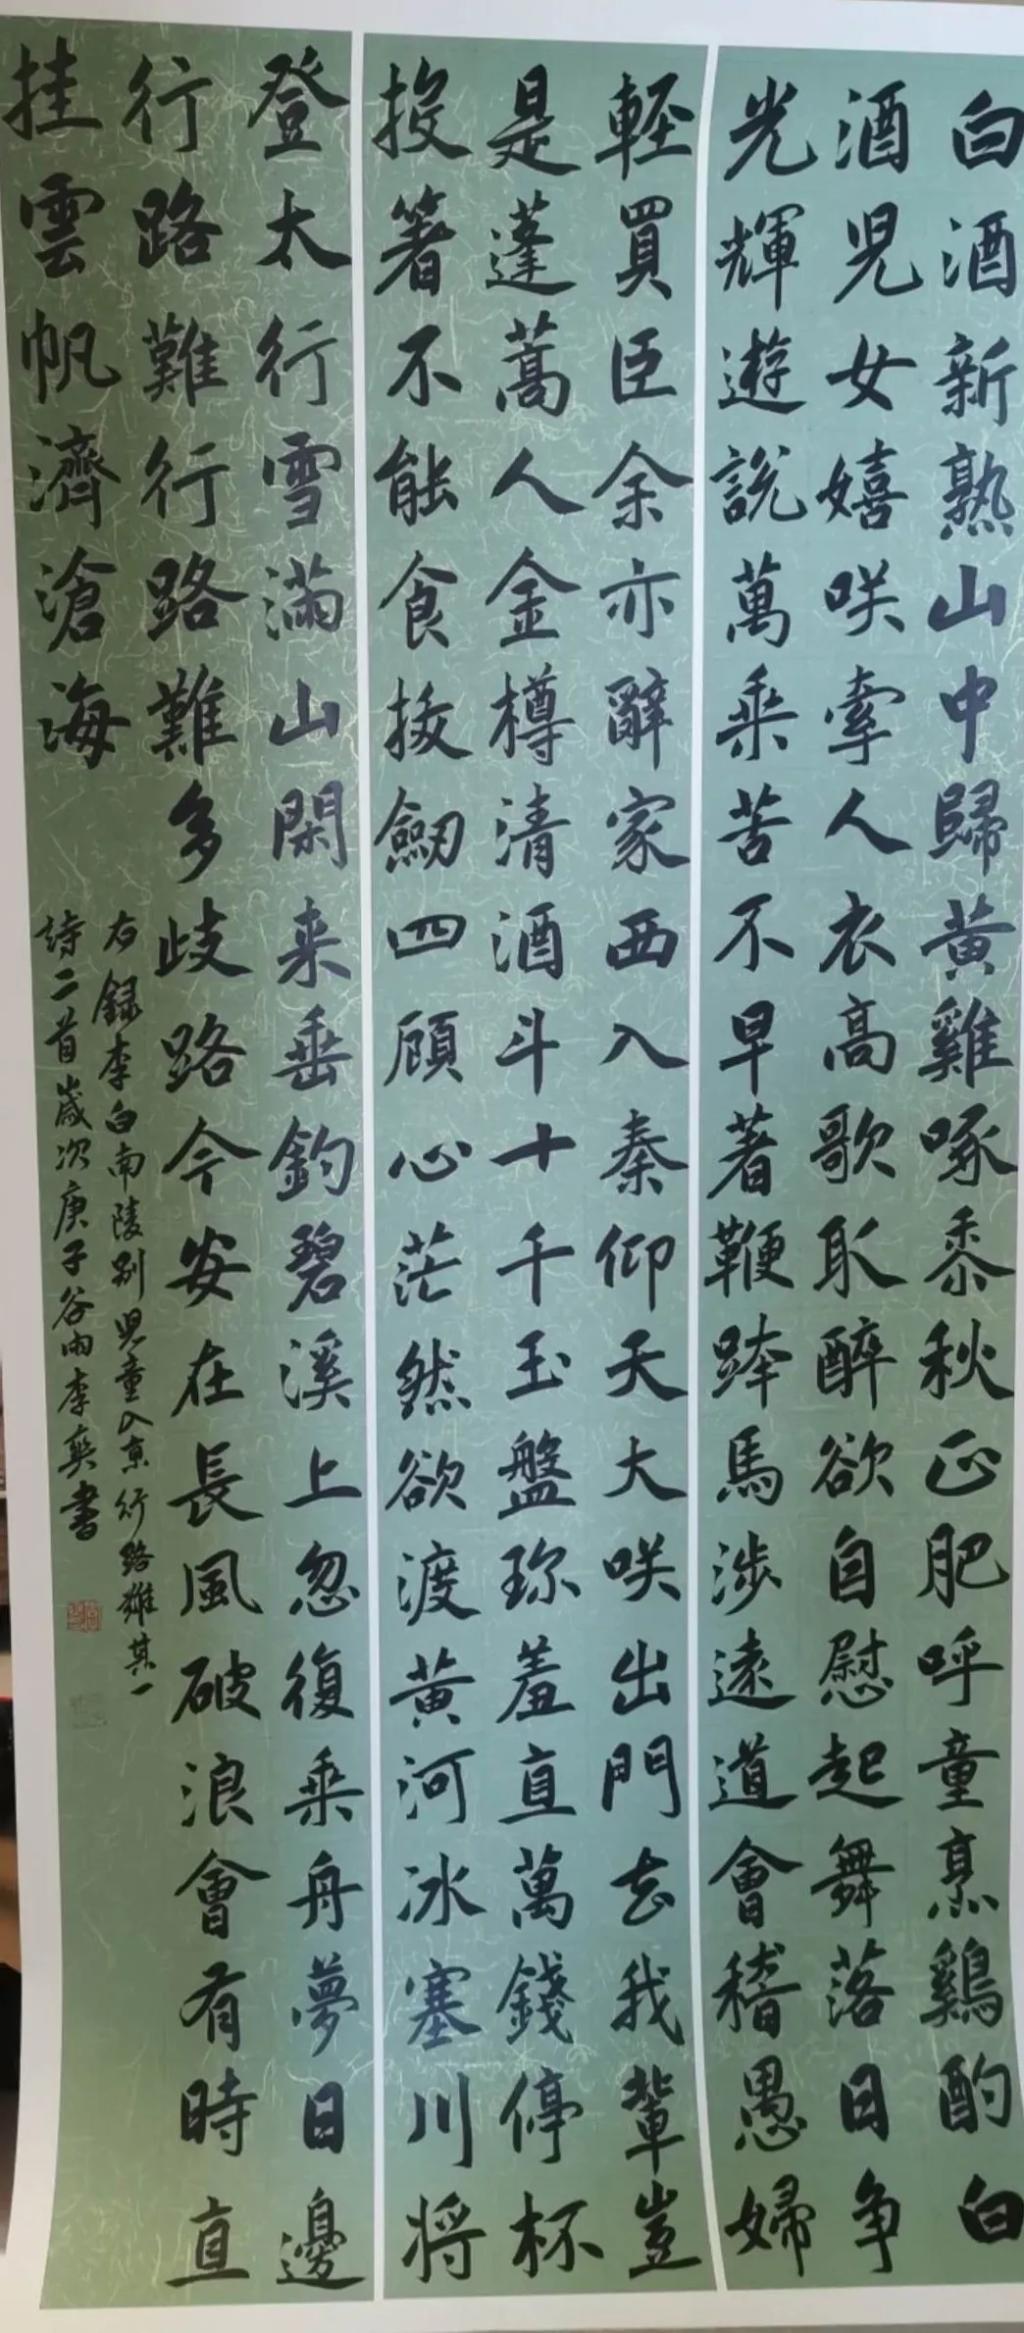 白酒新熟山中歸黄雞啄黍秋正肥呼童烹鷄酌白
酒児女嬉咲牽人衣高歌取醉欲自慰起舞落日争
光輝遊説萬乘苦不早著鞭跨馬涉遠道會稽愚婦
輕買臣余亦辭家西入秦仰天大咲出門去我輩豈
是蓬蒿人金樽清酒斗十千玉盤珎羞直萬錢停杯
投箸不能食拔劒四顧心茫然欲渡黄河冰塞川将
登太行雪滿山閑来垂釣碧溪上忽復乘舟夢日邊
行路難行路難多歧路今安在長風破浪會有時直
挂雲帆濟滄海
右録李白南陵别児童入京行路難其一
詩二首歲次庚子谷雨李奕書